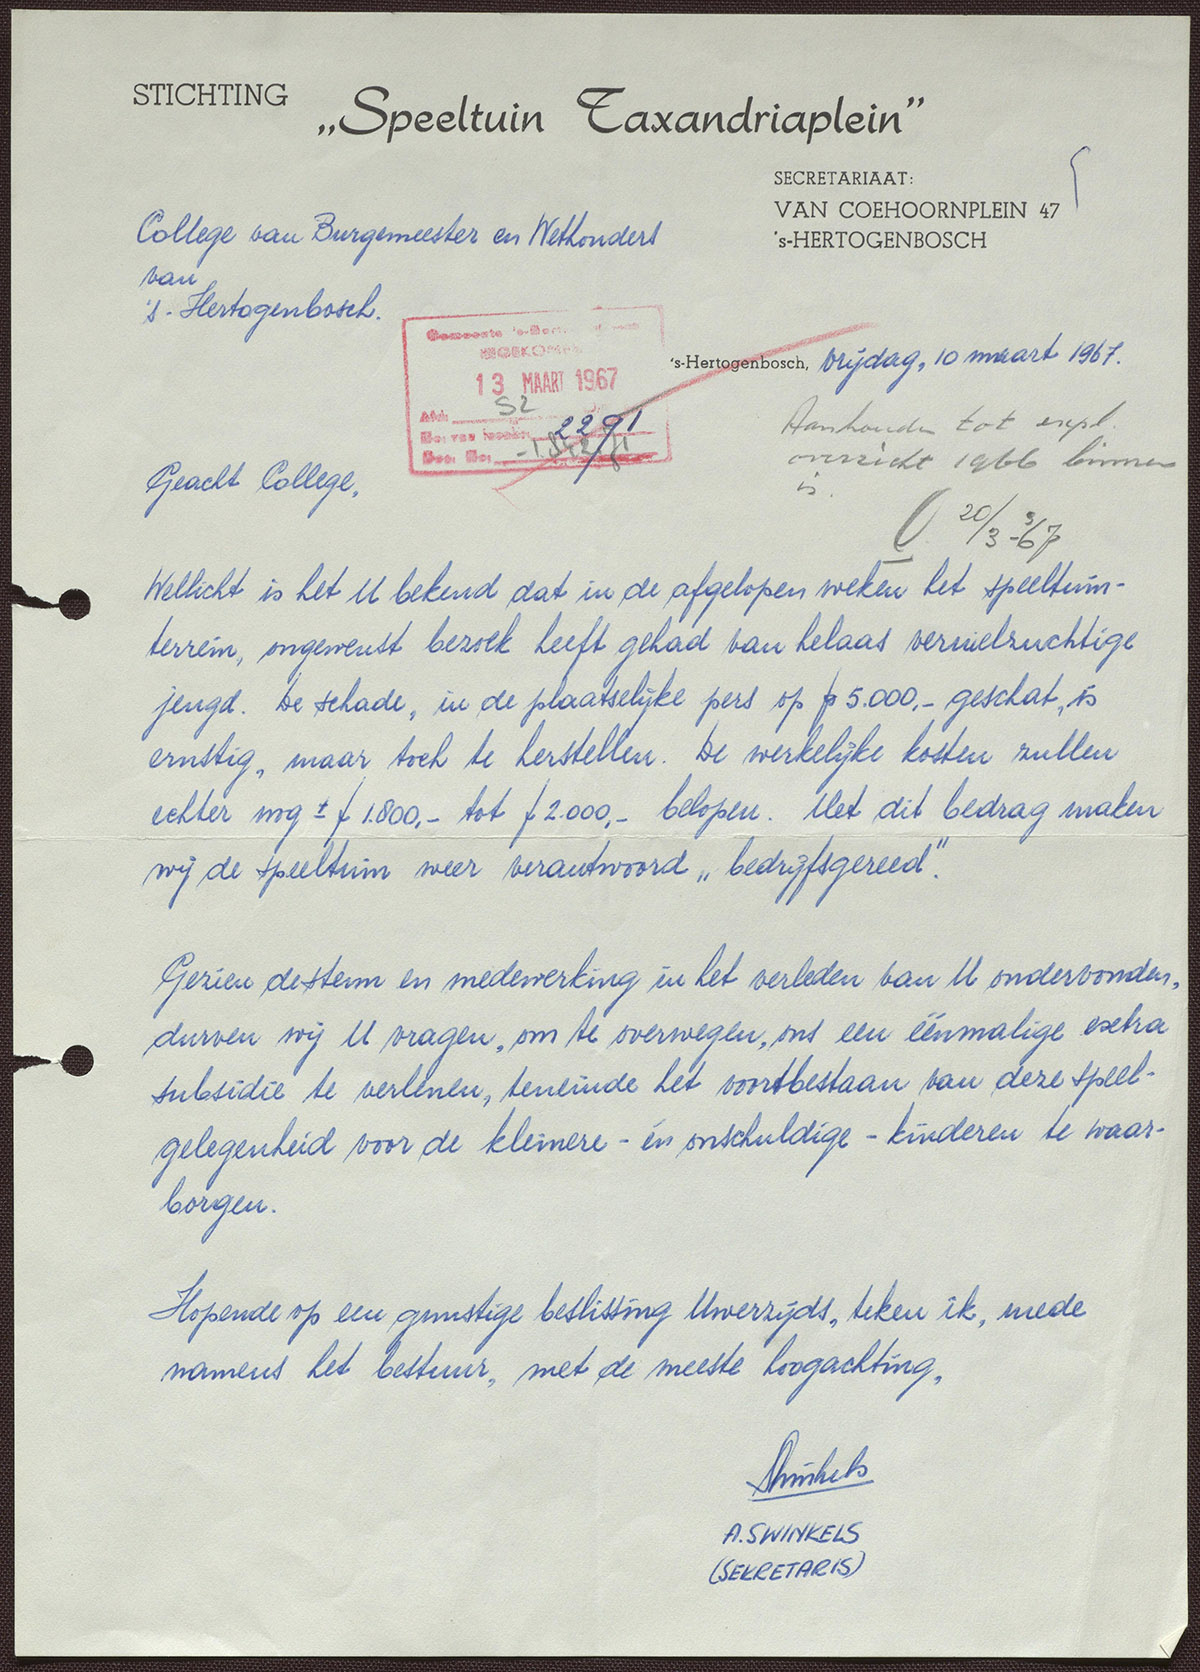 STICHTING
„Speeltuin Taxandriaplein”
SECRETARIAAT:
VAN COEHOORNPLEIN 47
's-HERTOGENBOSCH
College van Burgemeester en Wethouders
van
's-Hertogenbosch.
Gemeente
INGEKOMEN
13 MAART 1967
Afd. S2
2291
's-Hertogenbosch, vrijdag, 10 maart 1967.
Aanhouden tot expl.
overzicht 1966 binnen
is.
20/3-67
Geacht College,
Wellicht is het U bekend dat in de afgelopen weken het speeltuin-
terrein, ongewenst bezoek heeft gehad van helaas vernielzuchtige
jeugd. De schade, in de plaatselijke pers op f 5.000,- geschat, is
ernstig, maar toch te herstellen. De werkelijke kosten zullen
echter nog ± f 1.800,- tot f 2.000,- belopen. Met dit bedrag maken
wij de speeltuin weer verantwoord „bedrijfsgereed”.
Gezien de steun en medewerking in het verleden van U ondervonden,
durven wij U vragen, om te overwegen, ons een éénmalige extra
subsidie te verlenen, teneinde het voortbestaan van deze speel-
gelegenheid voor de kleinere - én onschuldige - kinderen te waar-
borgen.
Hopende op een gunstige beslissing Uwerzijds, teken ik, mede
namens het bestuur, met de meeste hoogachting,
Swinkels
A. SWINKELS
(SEKRETARIS)